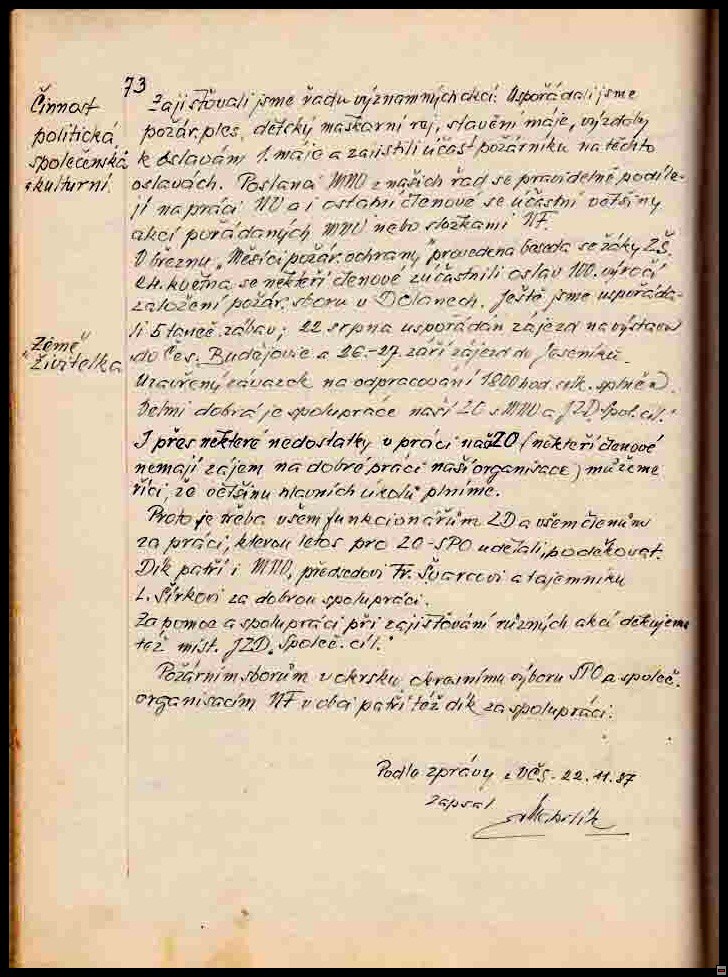 73
Činnost
politická
společenská
a kulturní.
Zajišťovali jsme řadu významných akcí: Uspořádali jsme
požár. ples, dětský maškarní rej, stavění máje, výzdoby
k oslavám 1. máje a zajistili účast požárníku na těchto
oslavách. Poslanci MNV z našich řad se pravidelně podíle-
jí na práci NV a i ostatní členové se účastní většiny
akcí pořádaných MNV nebo složkami NF.
V březnu „Měsíci požár. ochrany" provedena beseda se žáky ZŠ.
24. května se někteří členové zúčastnili oslav 100. výročí
založení požár. sboru v Dolanech. Ještě jsme uspořáda-
li 5 taneč. zábav; 22 srpna uspořádan zájezd na výstavu
„Země
živitelka"
do Čes. Budějovic a 26.-27. září zájezd do Jeseníků.
Uzavřený závazek na odpracování 1800 hod. celk. splněn.
Velmi dobrá je spolupráce naší ZO s MNV a JZD „Spol. cíl."
I přes některé nedostatky v práci naší ZO (někteří členové
nemají zájem na dobré práci naší organisace) můžeme
říci, že většinu hlavních úkolů plníme.
Proto je třeba všem funkcionářům ZO a všem členům
za práci, kterou letos pro ZO-SPO udělali, poděkovat.
Dík patří i MNV, předsedovi Fr. Švarcovi a tajemníku
L. Šírkovi za dobrou spolupráci.
Za pomoc a spolupráci při zajišťování různých akcí děkujeme
též míst. JZD „Společ. cíl."
Požárním sborům v okrsku, okresnímu výboru SPO a společ.
organisacím NF v obci patří též dík za spolupráci.
Podle zprávy z VČS - 22.11.87
zapsal